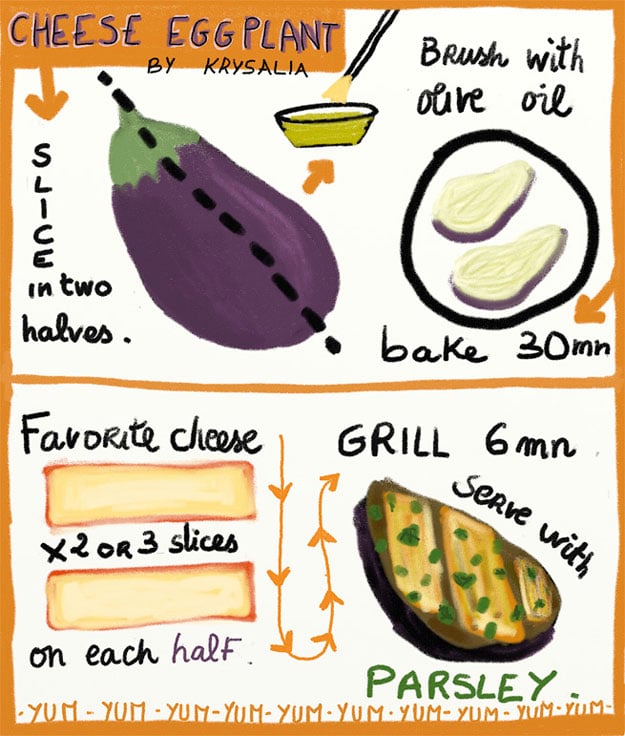 CHEESE EGGPLANT
BY KRYSALIA
SLICE
in two
halves.
Brush with
olive oil
bake 30mn
Favorite cheese
x2 or 3 slices
on each half.
GRILL 6mn
Serve with
PARSLEY.
- YUM - YUM - YUM - YUM - YUM - YUM - YUM - YUM - YUM - YUM -